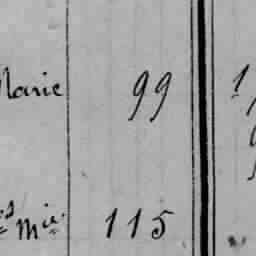 Marie 99 1
Mie 115